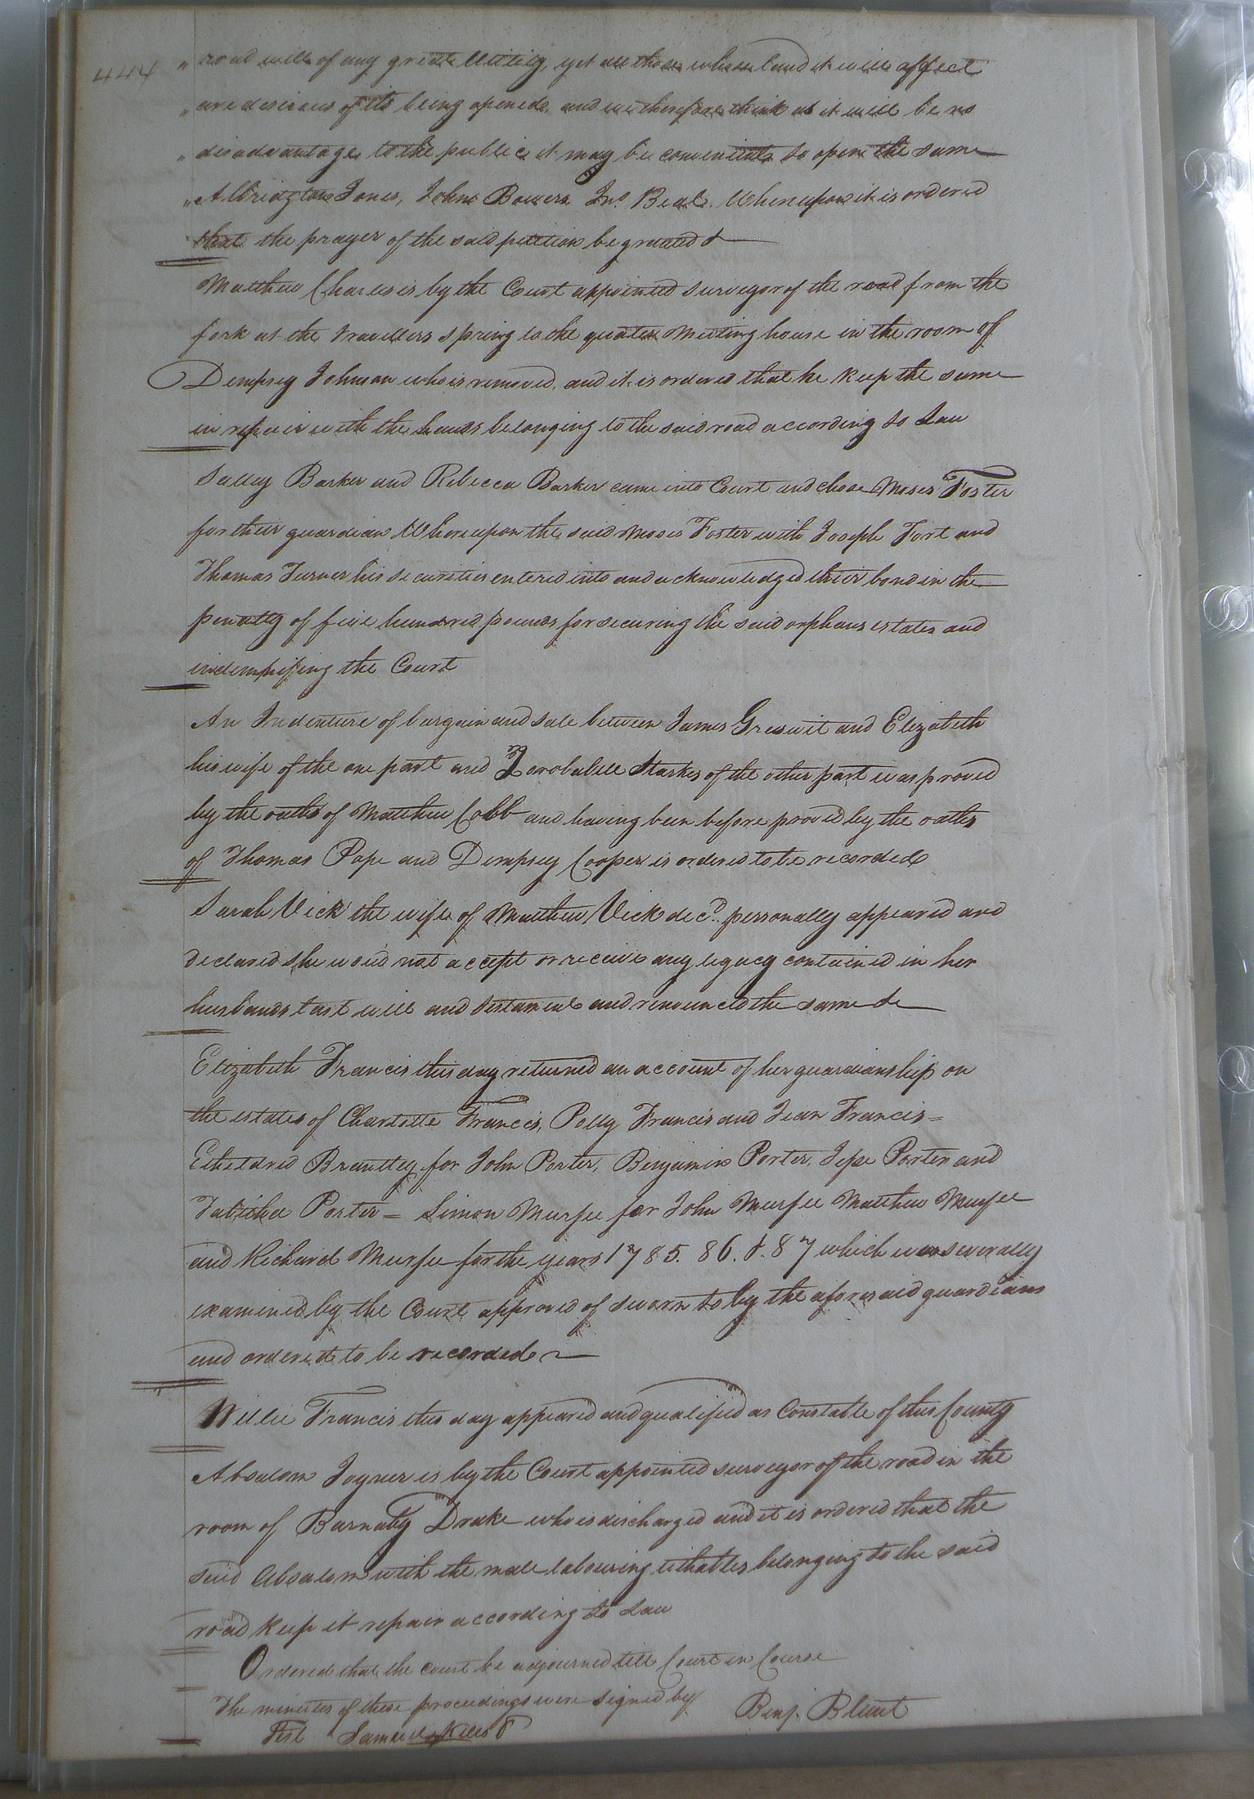 444
" road will of any great Utility, yet all those whose land it will affect
" are desirous of its being opened, and we therefore think as it will be no
" disadvantage to the public it may be convenient to open the same
" Albridgton Jones, John Bowers Jnr. Beal. Whereupon it is ordered
that the prayer of the said petition be granted &
Matthew Charles is by the Court appointed surveyor of the road from the
fork at the Travellers spring to the quaker Meeting house in the room of
Dempsey Johnson who is removed, and it is ordered that he keep the same
in repair with the hands belonging to the said road according to Law
Salley Barker and Rebecca Barker came into Court and chose Moses Foster
for their guardian Whereupon the said Moses Foster with Joseph Fort and
Thomas Turner his securities entered into and acknowledged their bond in the
penalty of five hundred pounds for securing the said orphans estates and
indemnifying the Court
An Indenture of bargain and sale between James Gresswit and Elizabeth
his wife of the one part and Zerobabell Starkes of the other part was proved
by the oaths of Matthew Cobb and having been before proved by the oaths
of Thomas Pope and Dempsey Cooper is ordered to be recorded
Sarah Vick the wife of Matthew Vick decd. personally appeared and
declared she would not accept or receive any legacy contained in her
husbands last will and testament and renounced the same &c
Elizabeth Francis this day returned an account of her guardianship on
the estates of Charlotte Francis, Polly Francis and Jean Francis =
Etheldred Brantley for John Porter, Benjamin Porter, Jesse Porter and
Tabitha Porter = Simon Murfee for John Murfee Matthew Murfee
and Richard Murfee for the years 1785. 86. & 87 which was severally
examined by the Court approved of sworn to by the aforesaid guardians
and ordered to be recorded
Willie Francis this day appeared and qualified as Constable of this County
Absalom Joyner is by the Court appointed surveyor of the road in the
room of Barnaby Drake who is discharged and it is ordered that the
said Absalom with the male labouring tithables belonging to the said
road keep it repair according to Law
Ordered that the court be adjourned till Court in Course
The minutes of these proceedings were signed by Benj. Blunt
Test Samuel Kello